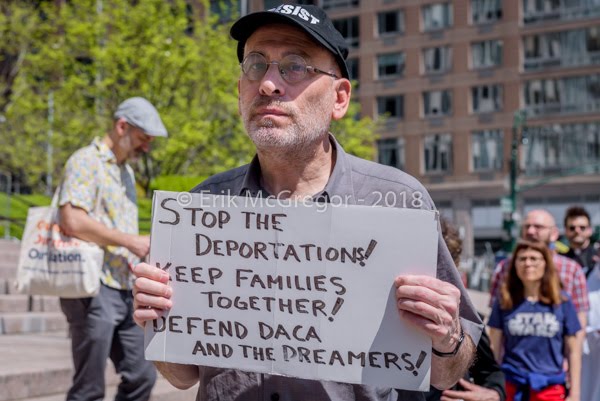 RESIST
© Erik McGregor - 2018
STOP THE
DEPORTATIONS!
KEEP FAMILIES
TOGETHER!
DEFEND DACA
AND THE DREAMERS!
STAR
WARS